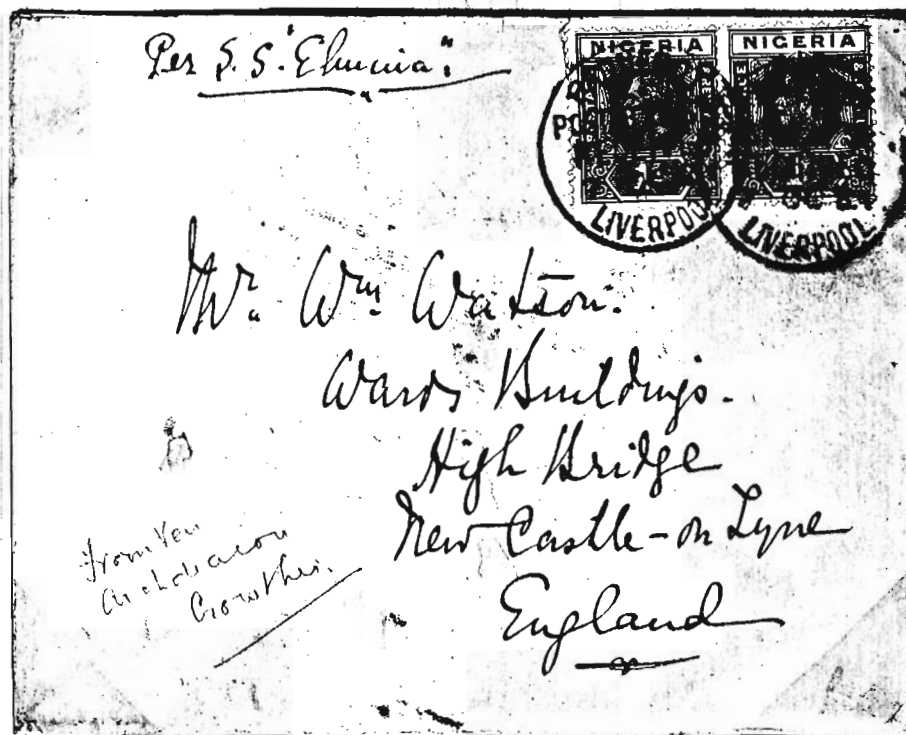 Per S.S. "Elmina"
NIGERIA NIGERIA
LIVERPOOL LIVERPOOL
Mr. Wm Watson.
Wards Buildings.
High Bridge
New Castle-on Tyne
England
From Ven
Archdeacon
Crowther.